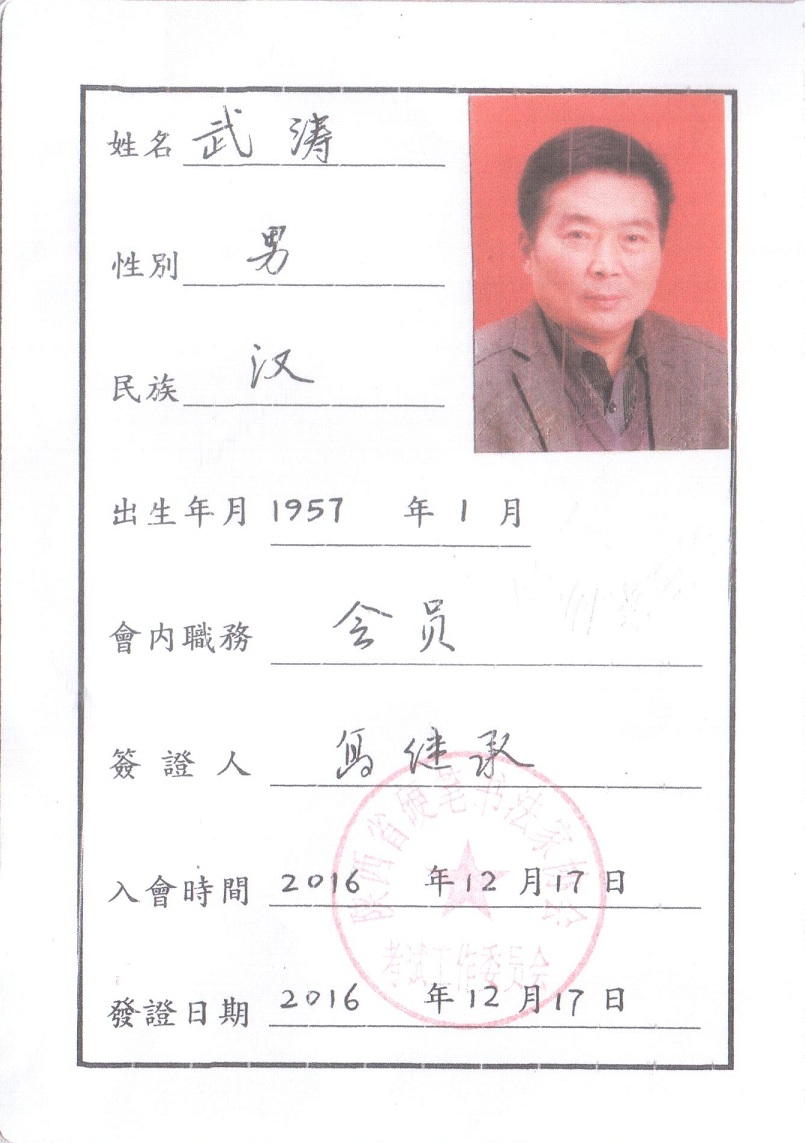 姓名 武涛
性別 男
民族 汉
出生年月 1957 年 1 月
會内職務 会员
簽證人 馬继承
入會時間 2016 年 12 月 17 日
發證日期 2016 年 12 月 17 日
陕西省硬笔书法家协会
考试工作委员会